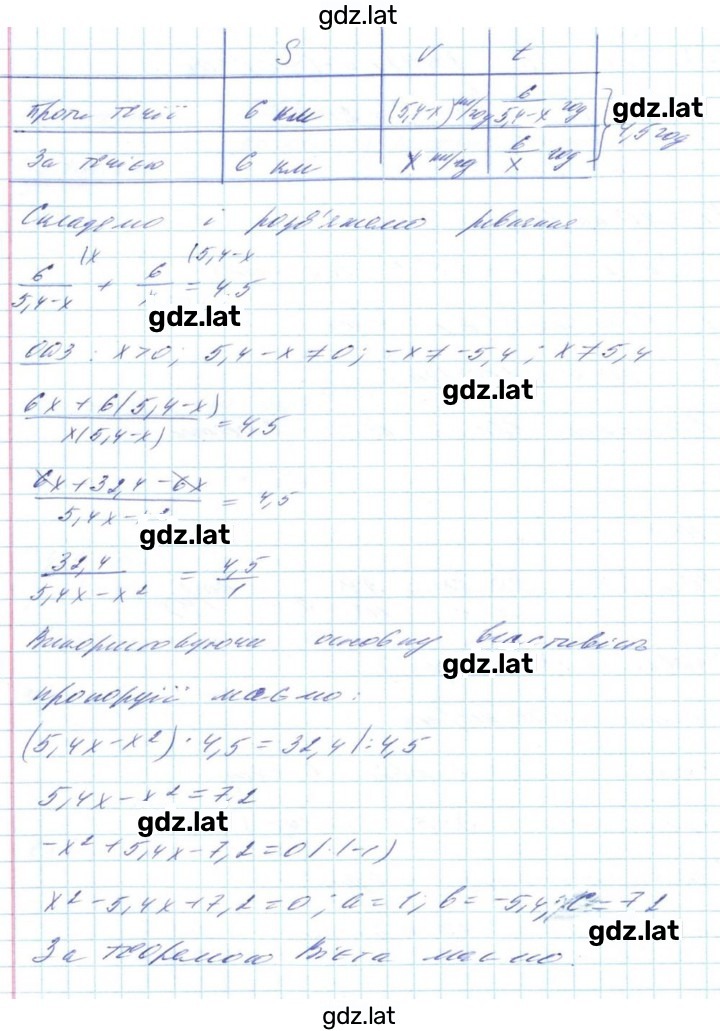 gdz.lat
S V t
Проти течії 6 км (5,4-x) км/год 6/(5,4-x) год
gdz.lat
4,5 год
За течією 6 км x км/год 6/x год
Складемо і розв'яжемо рівняння
6/(5,4-x) |x + 6/ |5,4-x = 4,5
gdz.lat
ОДЗ: x≠0; 5,4-x≠0; -x≠-5,4; x≠5,4
gdz.lat
(6x+6(5,4-x))/(x(5,4-x)) = 4,5
(6x+32,4-6x)/(5,4x- = 4,5
gdz.lat
32,4/(5,4x-x²) = 4,5/1
Використовуючи основну властивість
gdz.lat
пропорції маємо:
(5,4x-x²)·4,5=32,4|:4,5
5,4x-x²=7,2
gdz.lat
-x²+5,4x-7,2=0|·(-1)
x²-5,4x+7,2=0; a=1; b=-5,4; c=7,2
gdz.lat
За теоремою Вієта маємо:
gdz.lat